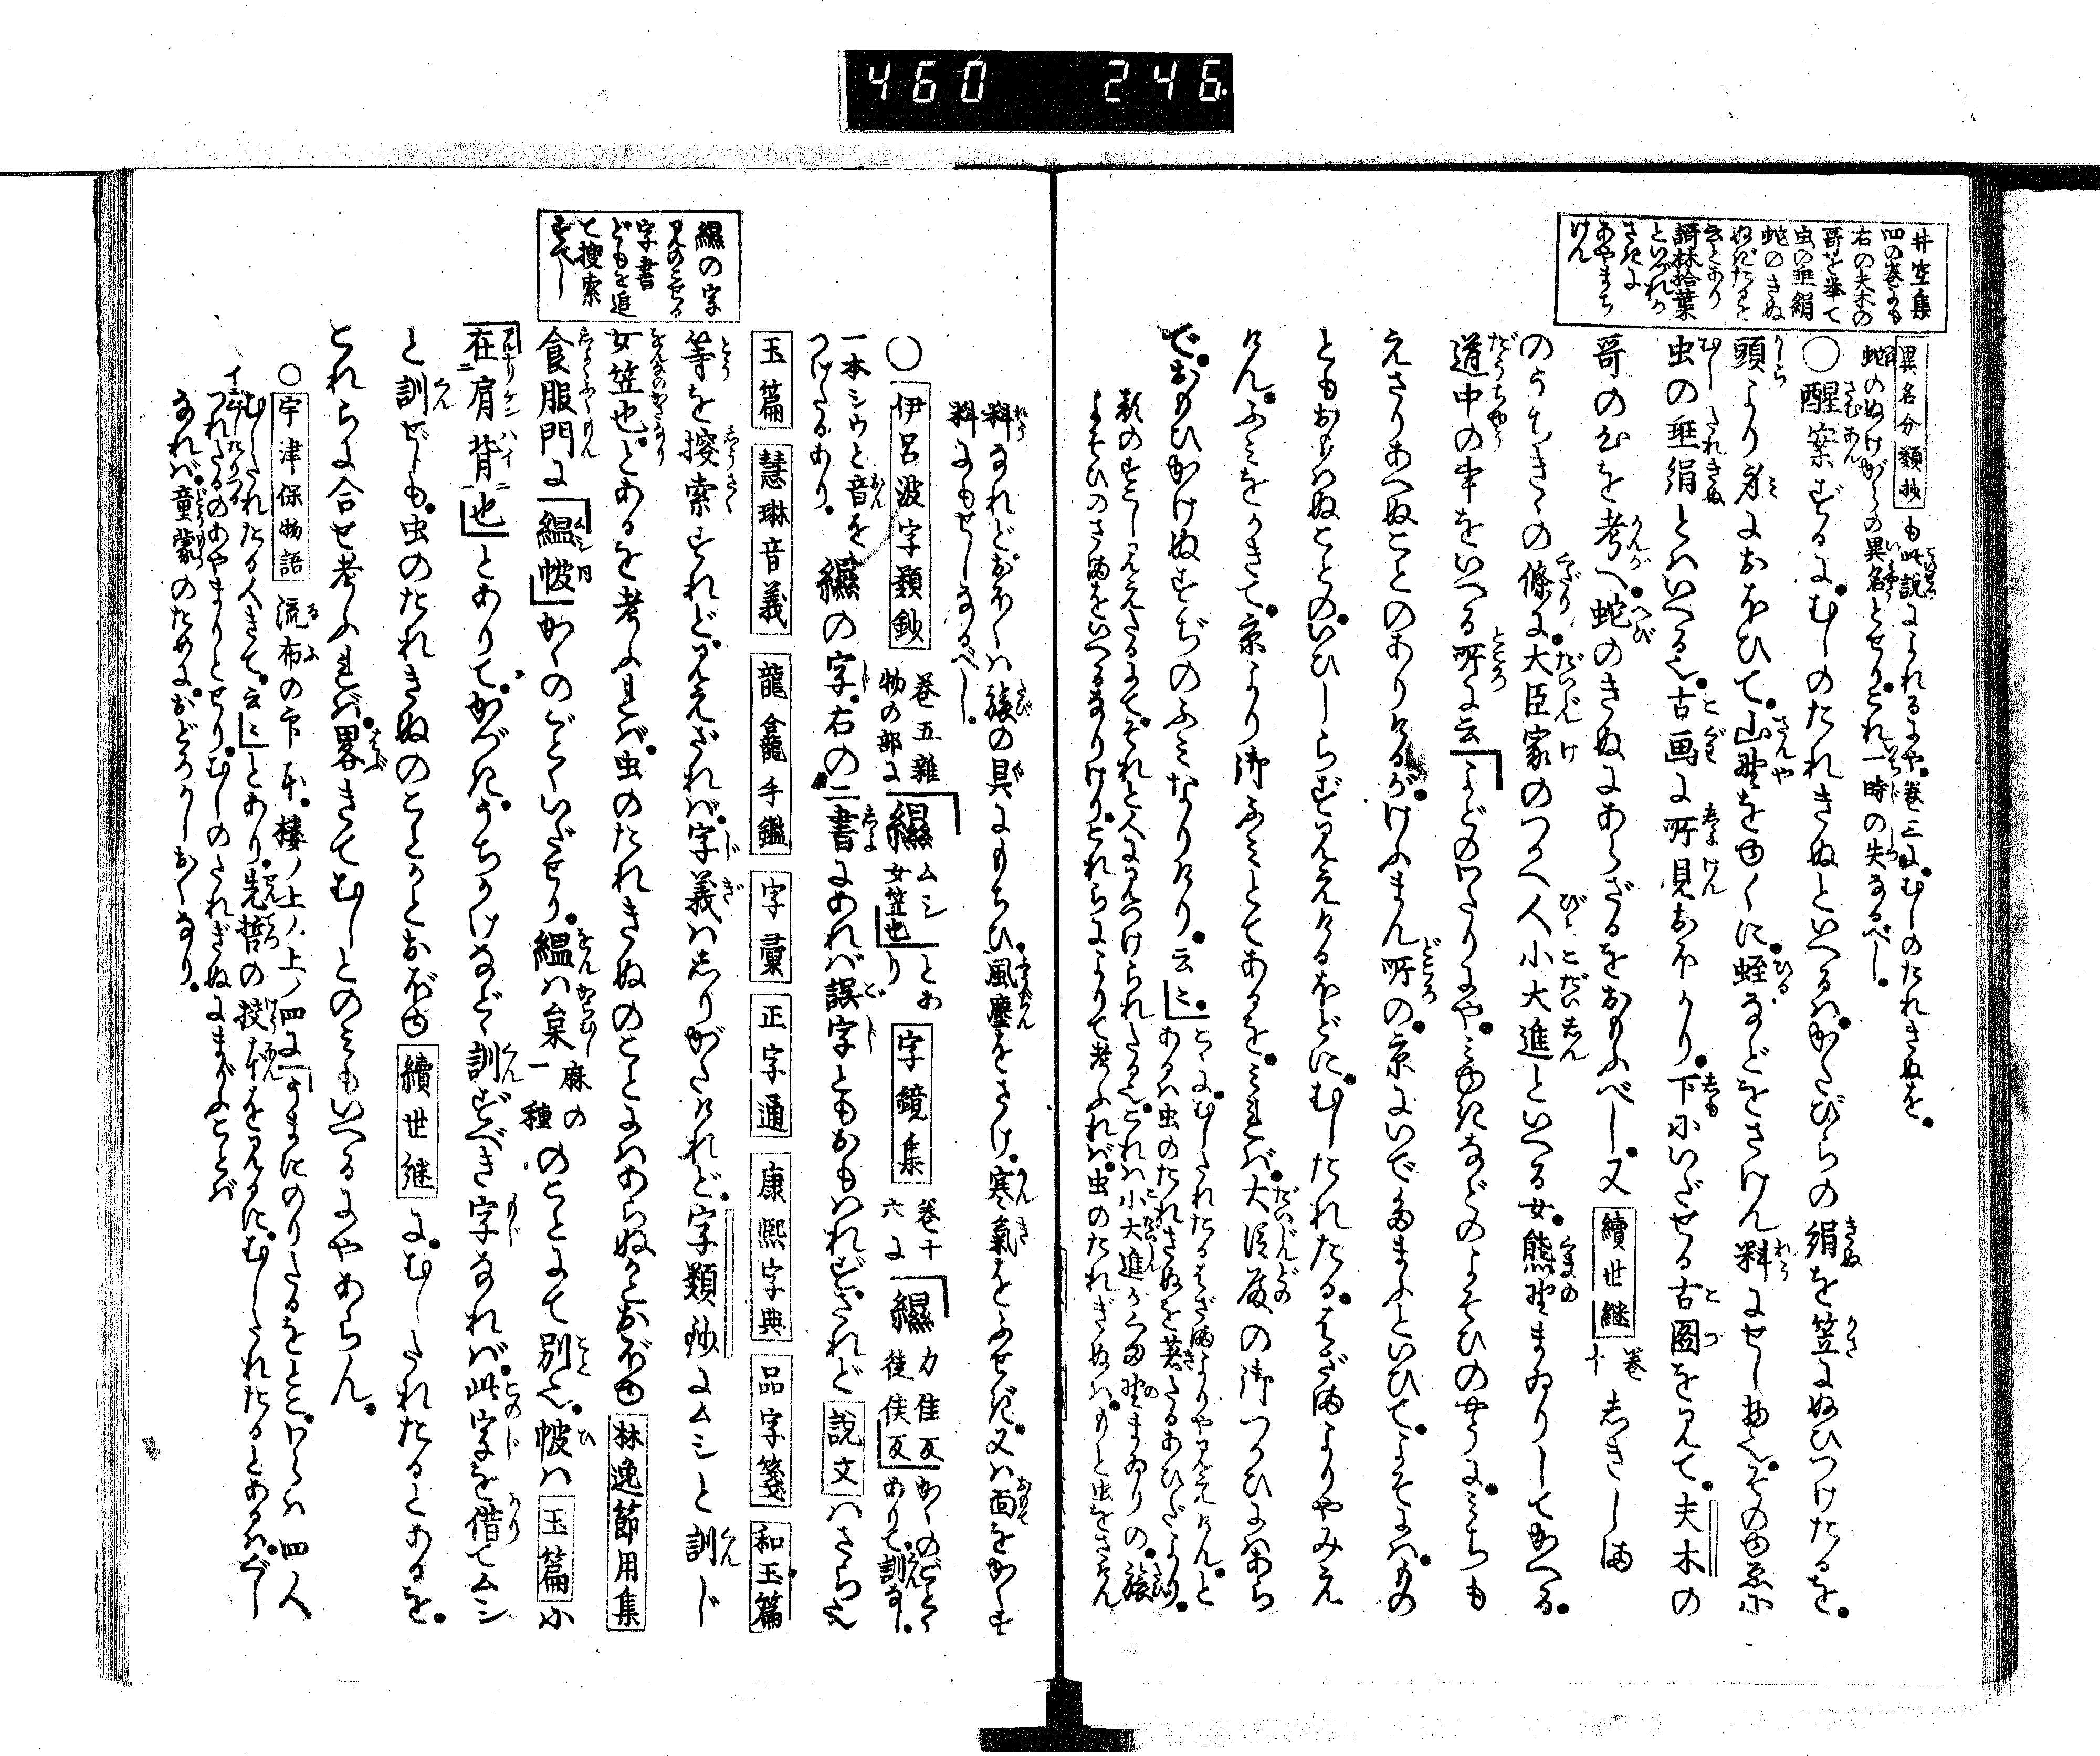 460 246.
井窓集
四の巻にも
右の夫木の
哥を挙て
虫の垂絹
蛇のきぬ
ぬぎたるを
云とあり
謌林拾葉
といづれか
さきに
あやまち
けん
異名分類抄も此説によれるにや。巻三に。むしのたれきぬを。
蛇のぬけがらの異名とせり。これ一時の失なるべし。
○醒案ずるに。むしのたれきぬといへるハ。かたびらの絹を笠にぬひつけたるを。
頭より身におほひて。山野をゆくに。蛭などをさけん料にせし物也。そのゆゑに
虫の垂絹とハいへる也。古画に所見おほかり。下にいだせる古圖を見て。夫木の
哥の心を考へ。蛇のきぬにあらざるをおもふべし。又 續世継 巻十 志きしま
のうちぎゝの條に。大臣家のつかへ人小大進といへる女。熊野まゐりしてかへる。
道中の事をいへる所に云「よどのわたりにや。みゆきなどのよそひのやうに。みちも
えさりあへぬことのありけるが。けふまん所の。京にいで給まふといひて。よそにハ。もの
ともおもハぬことの。いひしらず見えけるほどに。むしたれたる。はざまよりやみえ
けん。ふミをかきて。京より御ふミとてあるを。ミれバ。大臣殿の御つかひにハあら
で。おもひかけぬすぢのふミなりけり。云ミ」。こゝに。むしたれたるはざまよりや見えけん。と
あるハ虫のたれきぬを著たるあひだより。
顔のすこし見えたるにて。それと人に見つけられたる也。これハ小大進がくま野まゐりの。旅
よそひのさまをいへるなりけり。これらによりて考ふれバ。虫のたれぎぬハ。もと虫をさけん
料なれどおほくハ旅の具にもちひ。風塵をさけ。寒氣をふせぎ。又ハ面をかくす
料にもせしなるべし。
○伊呂波字類鈔 巻五雜物の部に「䌴 ムシ 女笠也」とあり 字鏡集 巻十六に「䌴 力隹反 徒侯反」かくのごとくありて。訓なし。
一本シウと音をつけたるあり。䌴の字。右の二書にあれバ誤字ともおもハれず。されど 説文 ハさら也
玉篇 慧琳音義 龍龕手鑑 字彙 正字通 康熙字典 品字箋 和玉篇
等を搜索すれど。見えざれバ。字義ハ志りがたけれど。字類鈔にムシと訓じ
女笠也。とあるを考ふれバ。虫のたれきぬのことにハあらぬかとおぼゆ 林逸節用集
食服門に「緼帔」かくのごとくいだせり。緼ハ枲 麻の一種 のことにて別也。帔ハ 玉篇 に
在肩背也」とありて。かづき。うちかけなど訓ずべき字なれバ。此字を借てムシ
と訓ぜしも。虫のたれきぬのことかとおぼゆ 續世継 に。むしたれたるとあるを。
これらに合せ考ふれバ。畧きてむしとのミもいへるにやあらん。
䌴の字
見のこせる
字書
どもを追
て搜索
すべし
○宇津保物語 流布の印本。樓ノ上ノ上ノ四に「うまにのりたるをとこ。わらハ四人
むしたれたる人きて。云ミ」とあり。先哲の挍本を見るに。むしたれたるとあるハ。ぐし
つれたるのあやまりとせり。むしのたれぎぬにまがふことば
なれバ。童蒙のためにおどろかしおくなり。